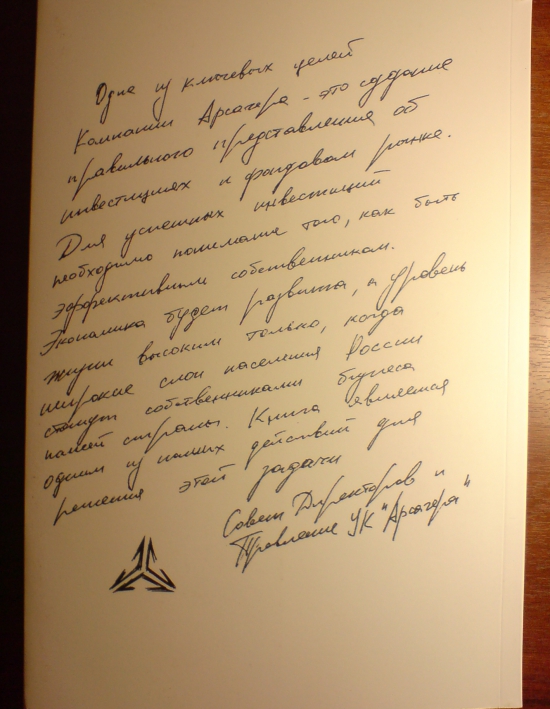 Одна из ключевых целей
Компании Арсагера - это создание
правильного представления об
инвестициях и фондовом рынке.
Для успешных инвестиций
необходимо понимание того, как быть
эффективным собственником.
Экономика будет развита, а уровень
жизни высоким только, когда
широкие слои населения России
станут собственниками бизнеса
нашей страны. Книга является
одним из наших действий для
решения этой задачи
Совет Директоров и
Правление УК "Арсагера"